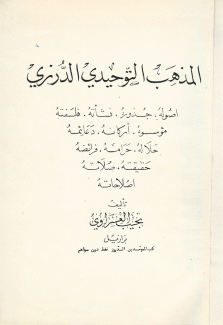 المذهب التوحيدي الدرزي
اصوله. جذوره. نشأته. فلسفته
مؤسسوه. أركانه. دعائمه
حلاله. حرامه. فرائضه
حقيقته. صلاته
اصلاحاته
تأليف
نجيب العسراوي
برازيل